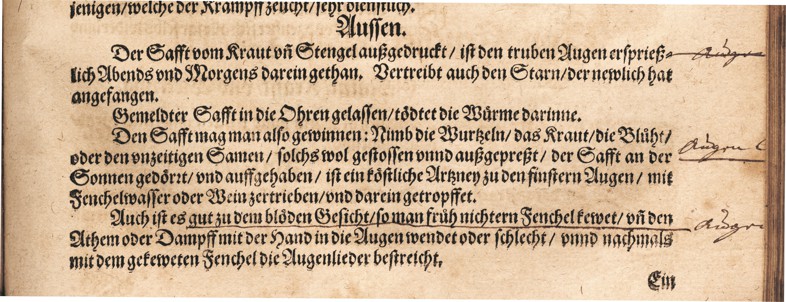 jenigen/welche der Krampff zeucht/sehr dienstlich.
Aussen.
Der Safft vom Kraut vñ Stengel außgedruckt/ ist den truben Augen ersprieß-
lich Abends vnd Morgens darein gethan. Vertreibt auch den Starn/der newlich hat
angefangen.
Gemeldter Safft in die Ohren gelassen/tödtet die Würme darinne.
Den Safft mag man also gewinnen: Nimb die Wurtzeln/ das Kraut/die Blüht/
oder den vnzeitigen Samen/ solchs wol gestossen vnnd außgepreßt/ der Safft an der
Sonnen gedörrt/ vnd auffgehaben/ ist ein köstliche Artzney zu den finstern Augen/ mit
Fenchelwasser oder Wein zertrieben/vnd darein getropffet.
Auch ist es gut zu dem blöden Gesicht/so man früh nichtern Fenchel kewet/ vñ den
Athem oder Dampff mit der Hand in die Augen wendet oder schlecht/ vnnd nachmals
mit dem gekeweten Fenchel die Augenlieder bestreicht.
Ein
Augen
Augen
Augen